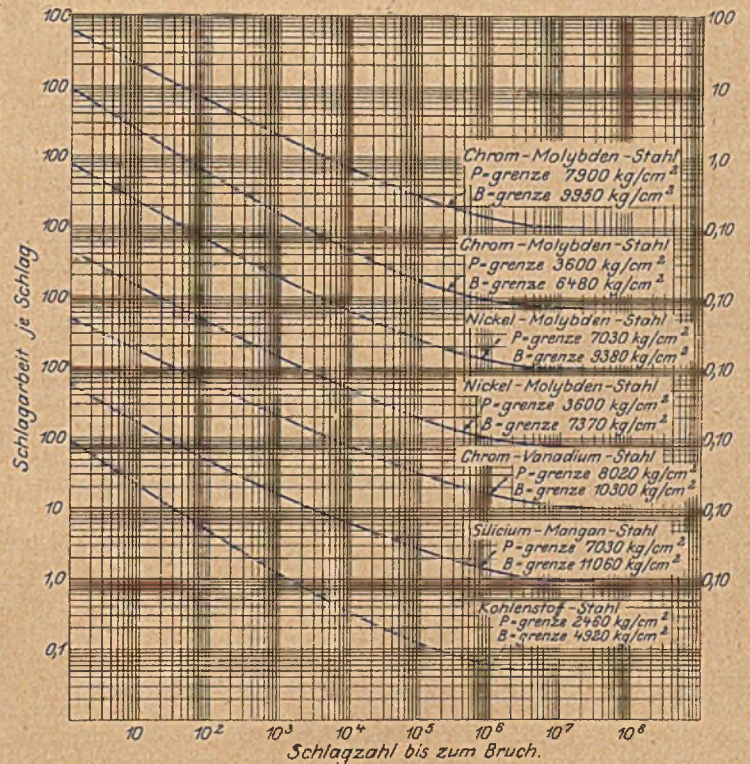 100
100
100
100
100
100
100
10
1,0
0,1
Schlagarbeit je Schlag
100
10
1,0
0,10
0,10
0,10
0,10
0,10
0,10
Chrom-Molybden-Stahl
P-grenze 7900 kg/cm²
B-grenze 9950 kg/cm²
Chrom-Molybden-Stahl
P-grenze 3600 kg/cm²
B-grenze 6480 kg/cm²
Nickel-Molybden-Stahl
P-grenze 7030 kg/cm²
B-grenze 9380 kg/cm²
Nickel-Molybden-Stahl
P-grenze 3600 kg/cm²
B-grenze 7370 kg/cm²
Chrom-Vanadium-Stahl
P-grenze 8020 kg/cm²
B-grenze 10300 kg/cm²
Silicium-Mangan-Stahl
P-grenze 7030 kg/cm²
B-grenze 11060 kg/cm²
Kohlenstoff-Stahl
P-grenze 2460 kg/cm²
B-grenze 4920 kg/cm²
10 10² 10³ 10⁴ 10⁵ 10⁶ 10⁷ 10⁸
Schlagzahl bis zum Bruch.